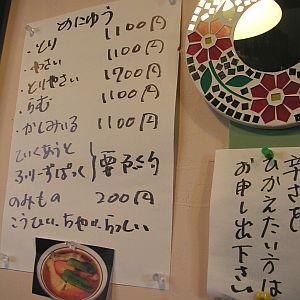 めにゅう
・とり 1100円
・やさい 1100円
・とりやさい 1700円
・らむ 1100円
・かしみいる 1100円
ていくあうと
ふりーずぱっく 要予約
のみもの 200円
こうひい、ちゃい、らっしい
辛さを
ひかえたい方は
お申し出下さい